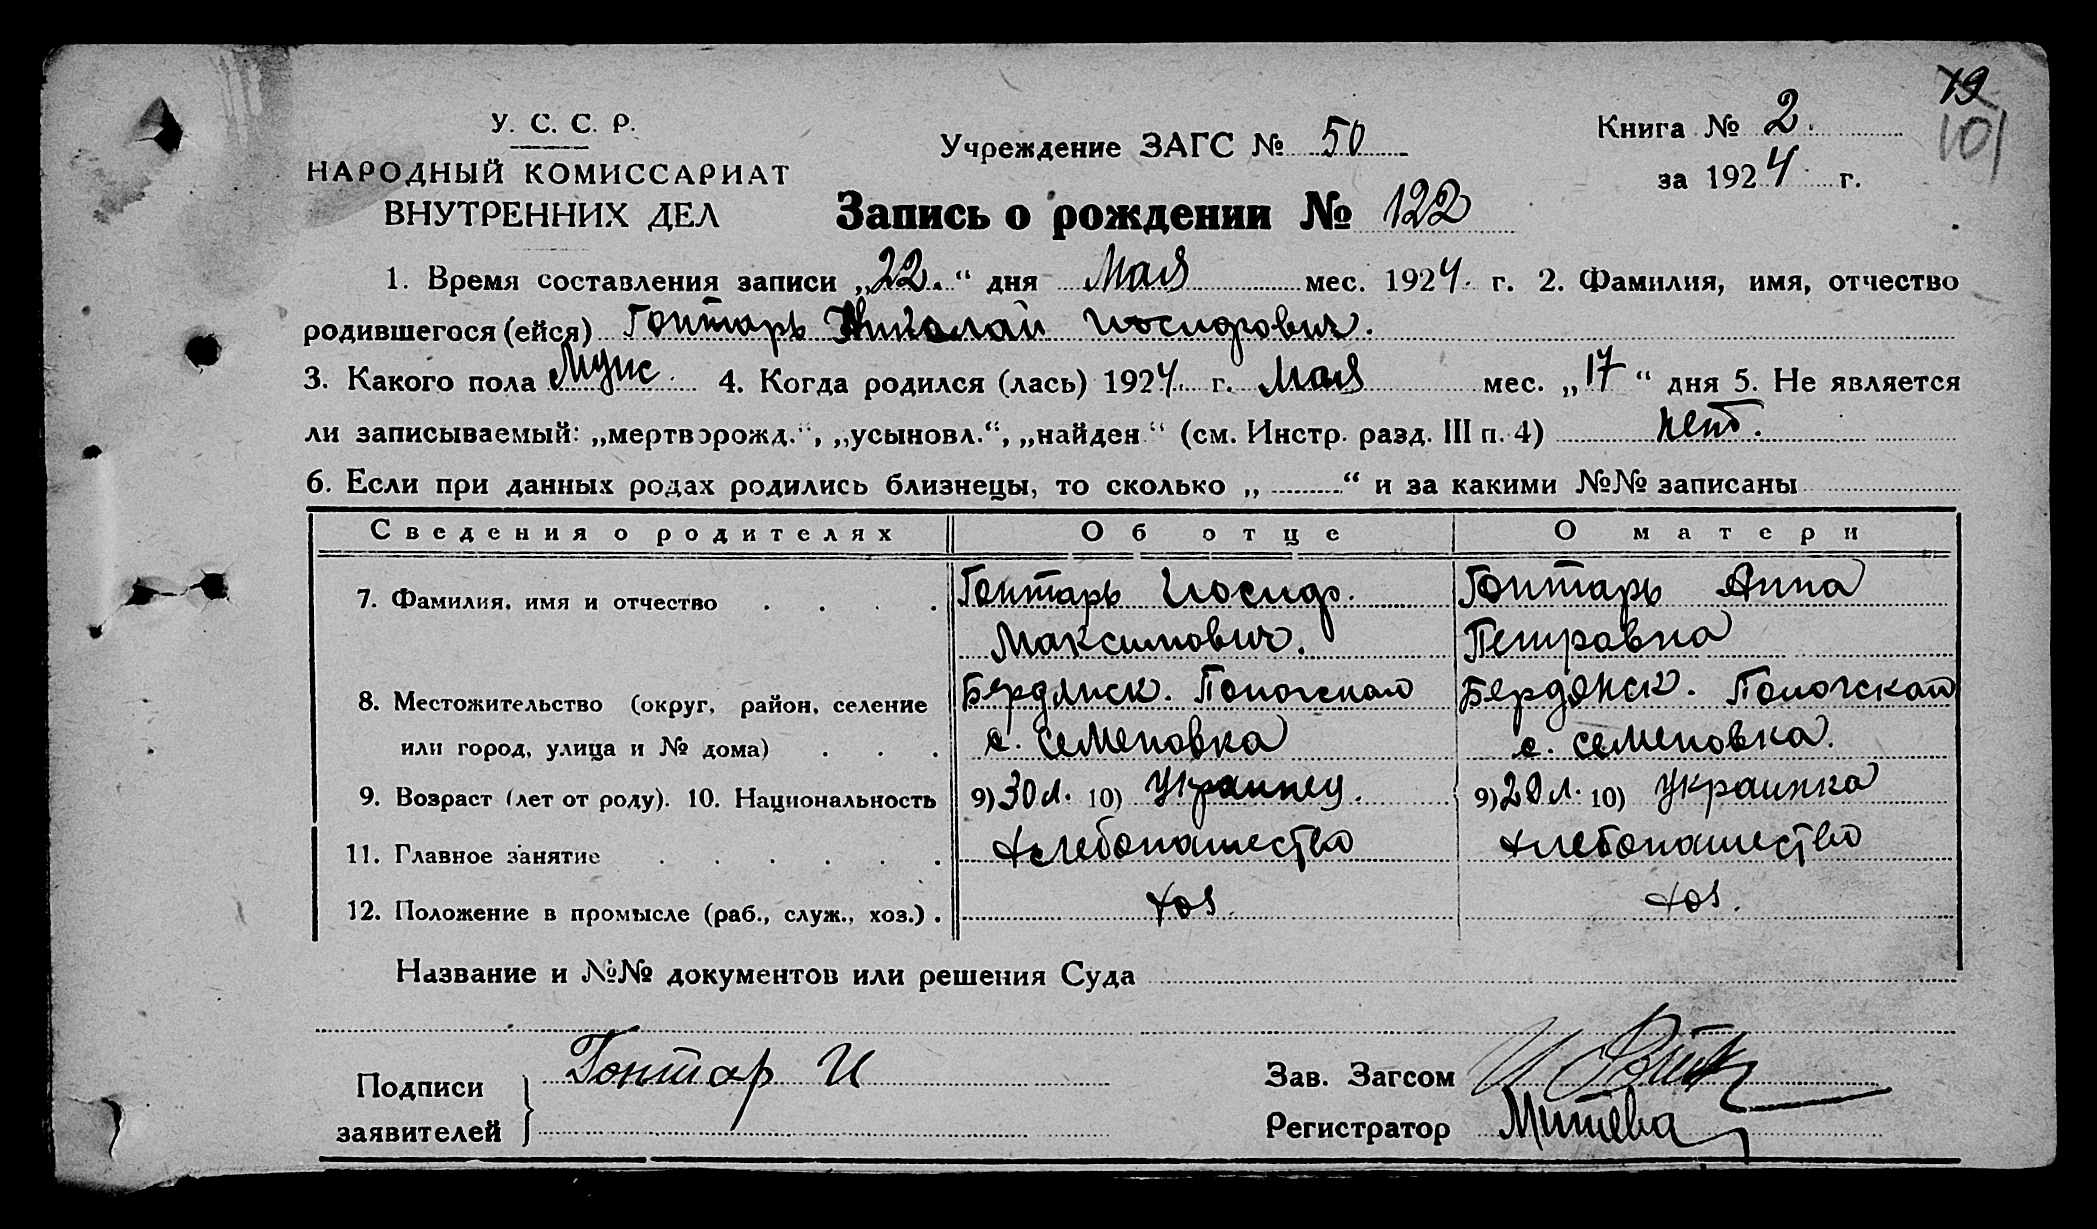 19
101
У. С. С. Р.
НАРОДНЫЙ КОМИССАРИАТ
ВНУТРЕННИХ ДЕЛ
Учреждение ЗАГС № 50
Книга № 2.
за 1924 г.
Запись о рождении № 122
1. Время составления записи „22.“ дня Мая мес. 1924 г. 2. Фамилия, имя, отчество
родившегося (ейся) Гонтарь Николай Иосифович.
3. Какого пола Муж. 4. Когда родился (лась) 1924 г. Мая мес. „17“ дня 5. Не является
ли записываемый: „мертворожд.“, „усыновл.“, „найден“ (см. Инстр. разд. III п. 4) нет.
6. Если при данных родах родились близнецы, то сколько „ “ и за какими №№ записаны
Сведения о родителях Об отце О матери
7. Фамилия, имя и отчество Гонтарь Иосиф. Гонтарь Анна
Максимович. Петравна
8. Местожительство (округ, район, селение Бердянск. Бердянск.
или город, улица и № дома) с. Семеновка с. Семеновка.
9. Возраст (лет от роду). 10. Национальность 9) 30 л. 10) Украинец. 9) 20 л. 10) Украинка
11. Главное занятие Хлебопашество Хлебопашество
12. Положение в промысле (раб., служ., хоз.) хоз. хоз.
Название и №№ документов или решения Суда
Подписи
заявителей
Гонтар И
Зав. Загсом
Регистратор